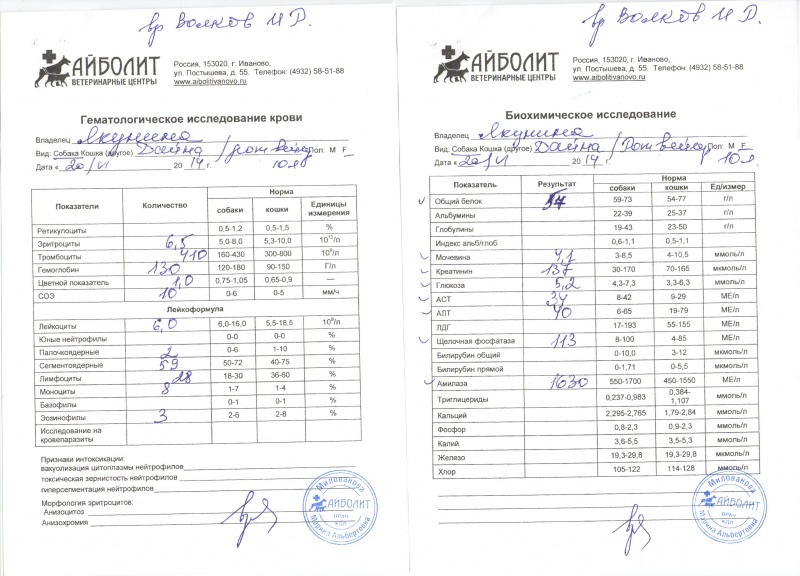 вр Волков И.Р.
АЙБОЛИТ
ВЕТЕРИНАРНЫЕ ЦЕНТРЫ
Россия, 153020, г. Иваново,
ул. Постышева, д. 55. Телефон: (4932) 58-51-88
www.aibolitivanovo.ru
Гематологическое исследование крови
Владелец Якунина
Вид: Собака Кошка (другое) Дайна / ротвейлер Пол: M F
Дата « 20/VI 20 14 г. 10л
Показатели Количество Норма
собаки кошки Единицы измерения
Ретикулоциты 0,5-1,2 0,5-1,5 %
Эритроциты 6,5 5,0-8,0 5,3-10,0 10¹²/л
Тромбоциты 410 160-430 300-800 10⁹/л
Гемоглобин 130 120-180 90-150 Г/л
Цветной показатель 1,0 0,75-1,05 0,65-0,9 —
СОЭ 10 0-6 0-5 мм/ч
Лейкоформула
Лейкоциты 6,0 6,0-16,0 5,5-18,5 10⁹/л
Юные нейтрофилы 0-0 0-0 %
Палочкоядерные 2 0-6 1-10 %
Сегментоядерные 59 50-72 40-75 %
Лимфоциты 28 18-30 36-60 %
Моноциты 8 1-7 1-4 %
Базофилы 0-1 0-1 %
Эозинофилы 3 2-6 2-8 %
Исследование на кровепаразиты
Признаки интоксикации:
вакуолизация цитоплазмы нейтрофилов
токсическая зернистость нейтрофилов
гиперсегментация нейтрофилов
Морфология эритроцитов:
Анизоцитоз
Анизохромия
Милованова
АЙБОЛИТ
ВРАЧ
КДЛ
Марина Альбертовна
вр Волков И.Р.
АЙБОЛИТ
ВЕТЕРИНАРНЫЕ ЦЕНТРЫ
Россия, 153020, г. Иваново,
ул. Постышева, д. 55. Телефон: (4932) 58-51-88
www.aibolitivanovo.ru
Биохимическое исследование
Владелец Якунина
Вид: Собака Кошка (другое) Дайна / Ротвейлер Пол: M F
Дата « 20/VI 20 14 г. 10л
Показатель Результат Норма
собаки кошки Ед/измер
Общий белок 54 59-73 54-77 г/л
Альбумины 22-39 25-37 г/л
Глобулины 19-43 23-50 г/л
Индекс альб/глоб 0,6-1,1 0,5-1,1
Мочевина 4,1 3-8,5 4-10,5 ммоль/л
Креатинин 137 30-170 70-165 мкмоль/л
Глюкоза 5,2 4,3-7,3 3,3-6,3 ммоль/л
АСТ 34 8-42 9-29 МЕ/л
АЛТ 40 6-65 19-79 МЕ/л
ЛДГ 17-193 55-155 МЕ/л
Щелочная фосфатаза 113 8-100 4-85 МЕ/л
Билирубин общий 0-10,0 3-12 мкмоль/л
Билирубин прямой 0-1,71 0-5,5 мкмоль/л
Амилаза 1630 550-1700 450-1550 МЕ/л
Триглицериды 0,237-0,983 0,384-1,107 ммоль/л
Кальций 2,295-2,765 1,79-2,84 ммоль/л
Фосфор 0,8-2,3 0,9-2,3 ммоль/л
Калий 3,6-5,5 3,5-5,3 ммоль/л
Железо 19,3-29,8 19,3-29,8 мкмоль/л
Хлор 105-122 114-128 ммоль/л
Милованова
АЙБОЛИТ
ВРАЧ
КДЛ
Марина Альбертовна